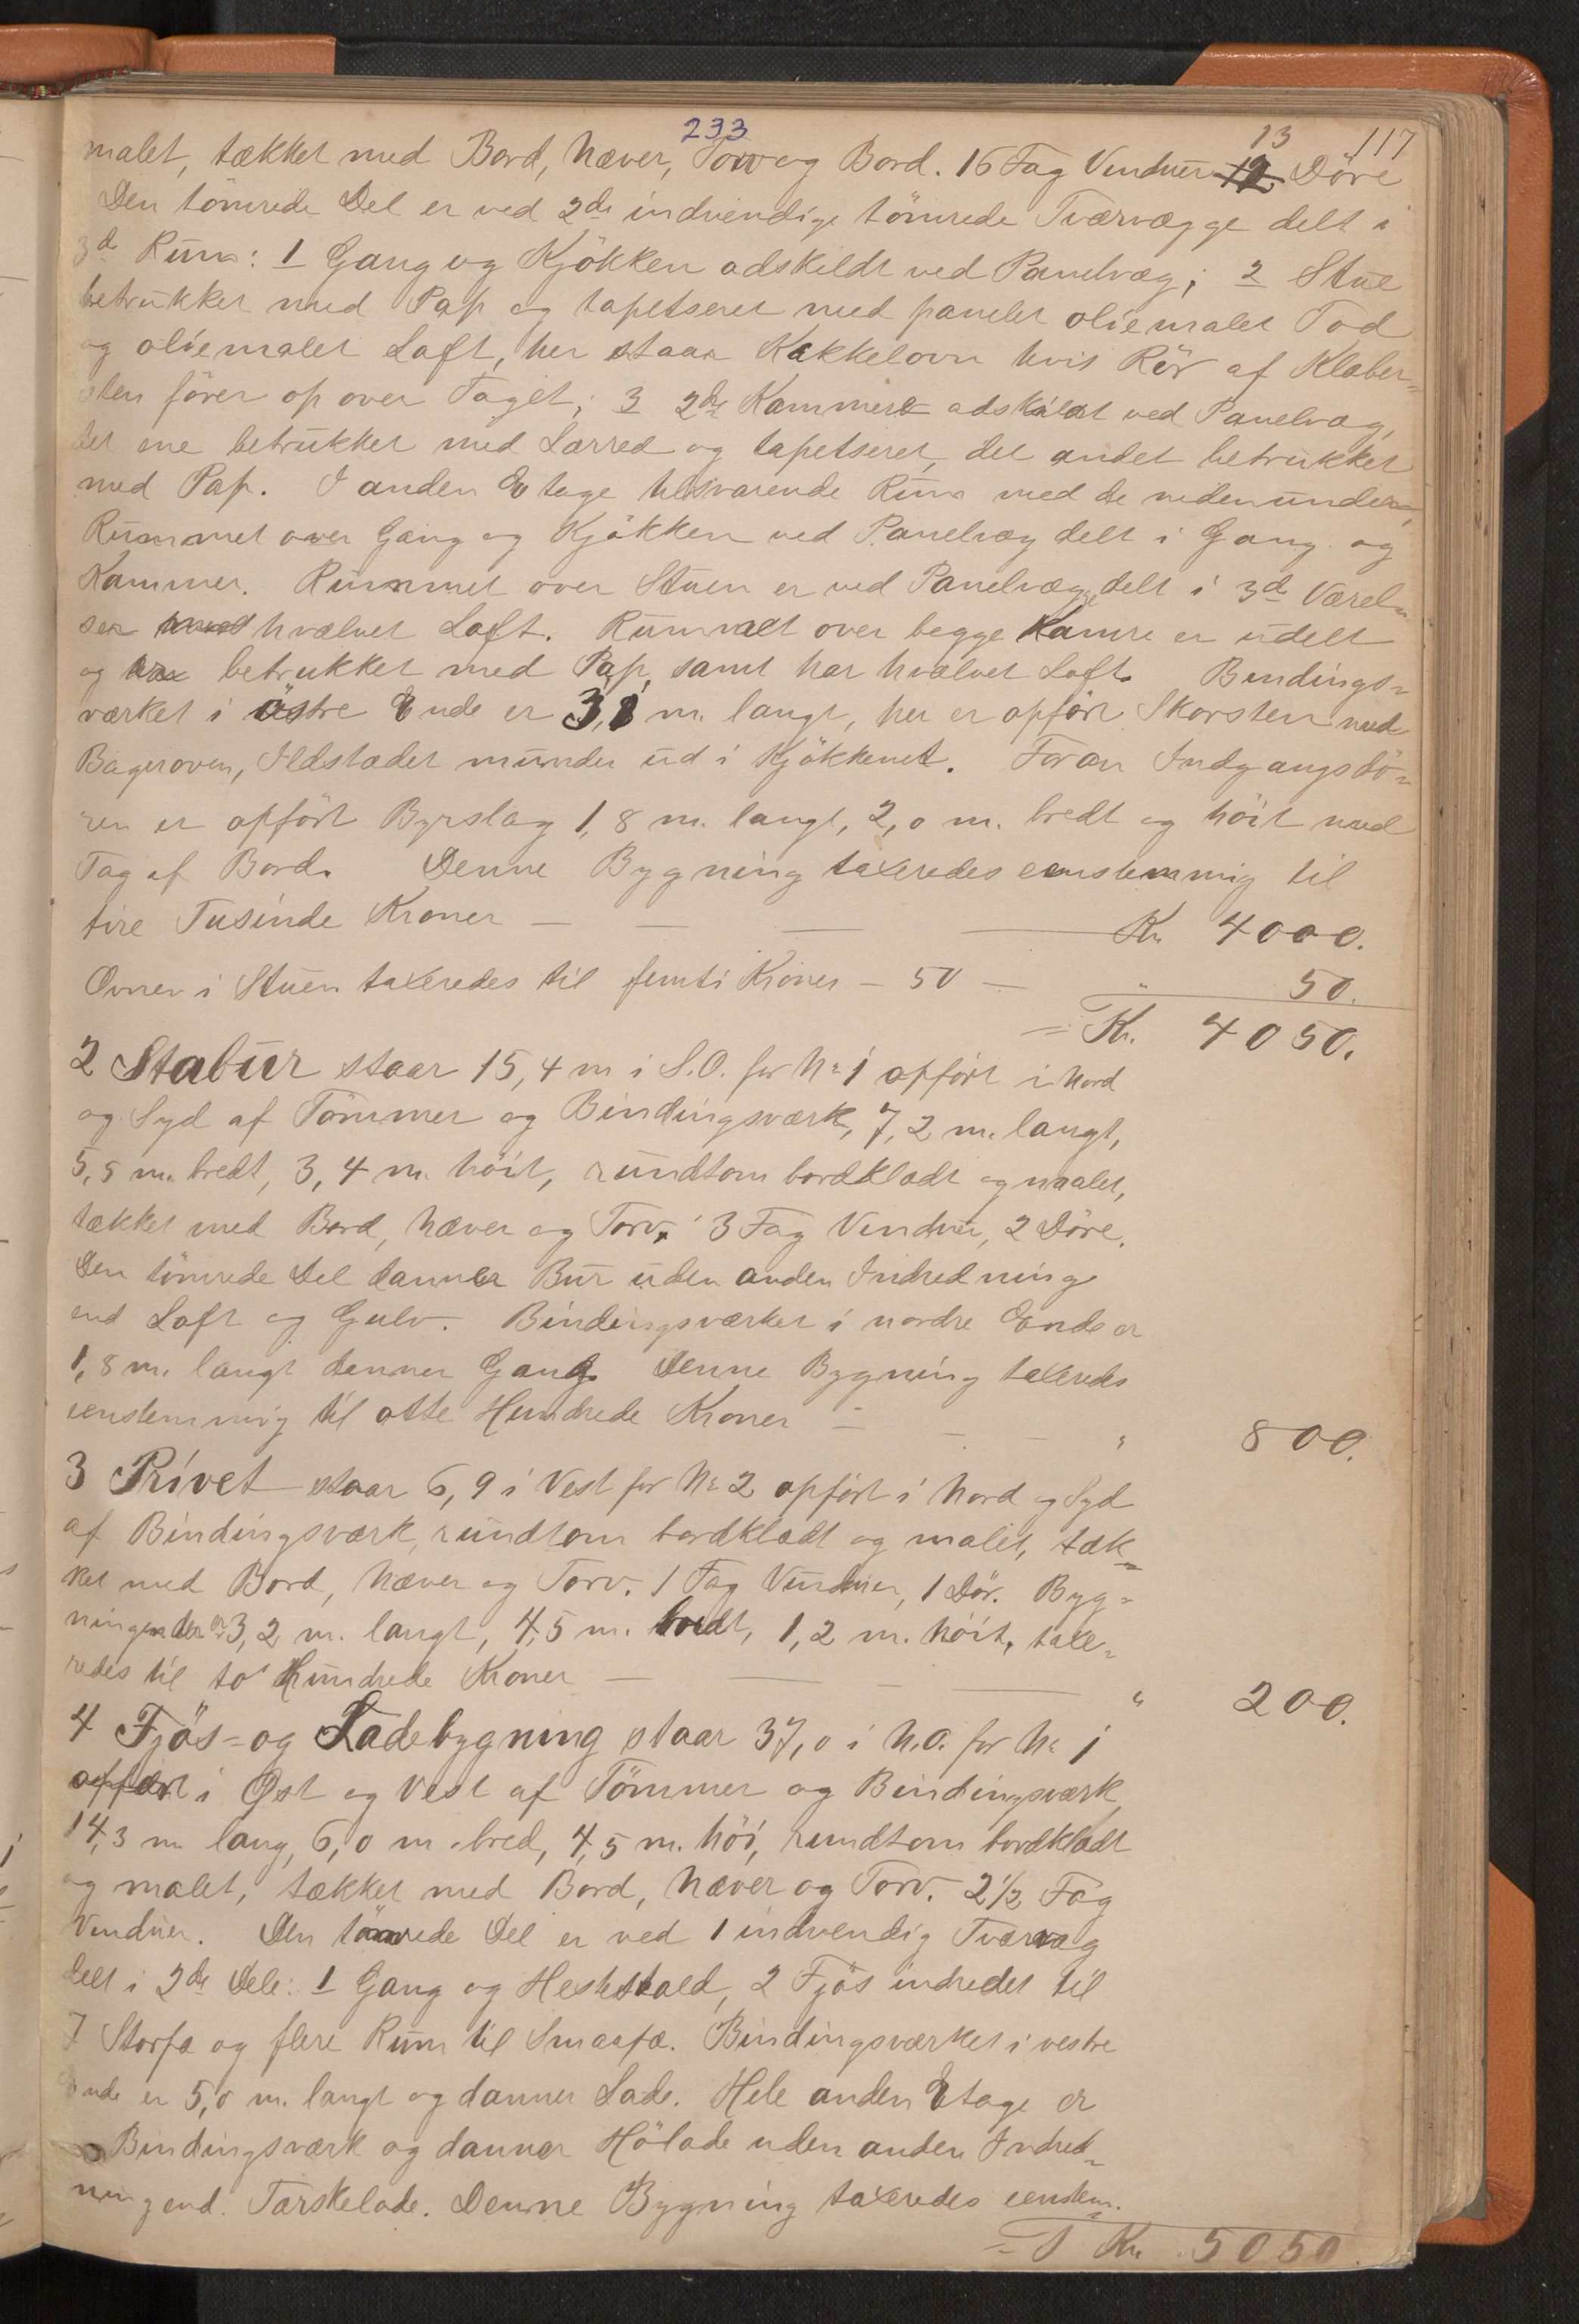 233
117
malet, tækket med Bord, Næver, Torv og Bord. 16 Fag Vinduer 13 Döre
Den tömrede Del er ved 2de indvendige tömrede Tværvægge delt i
3de Rum: 1 Gang og Kjökken adskildt ved Panelvæg; 2 Stue
betrukket med Pap og tapetseret med panelet oliemalet Fod
og oliemalet Loft, her staar Kakkelovn hvis Rör af Kleber=
sten förer op over Taget; 3 2de Kammere adskildt ved Panelvæg,
det ene betrukket med Lærred og tapetseret, det andet betrukket
med Pap. I anden Etage tilsvarende Rum med de nedenunder,
Rummet over Gang og Kjökken ved Panelvæg delt i Gang og
Kammer. Rummet over Stuen er ved Panelvægge delt i 3de Værel=
ser hvælvet Loft. Rummet over begge Kamre er udelt
og betrukket med Pap, samt har hvælvet Loft. Bindings=
værket i östre Ende er 3,8 m. langt, her er opfört Skorsten med
Bagerovn, Ildstedet munder ud i Kjökkenet. Foran Indgangsdö=
ren er opfört Byrslag 1,8 m. langt, 2,0 m. bredt og höit med
Tag af Bord. Denne Bygning taxeredes eenstemmig til
fire Tusinde Kroner — — — — Kr. 4000.
Ovnen i Stuen taxeredes til femti Kroner — 50 — " 50.
= Kr. 4050.
2 Stabur staar 15,4 m i S.O. for No 1 opfört i Nord
og Syd af Tömmer og Bindingsværk, 7,2 m. langt,
5,5 m. bredt, 3,4 m. höit, rundtom bordklædt og malet,
tækket med Bord, Næver og Torv. 3 Fag Vinduer, 2 Döre.
Den tömrede Del danner Bur uden anden Indredning
end Loft og Gulv. Bindingsværket i nordre Ende er
1,8 m. langt danner Gang. Denne Bygning taxeredes
eenstemmig til otte Hundrede Kroner — — — " 800.
3 Privet staar 6,9 i Vest for No 2 opfört i Nord og Syd
af Bindingsværk, rundtom bordklædt og malet, tæk=
ket med Bord, Næver og Torv. 1 Fag Vinduer, 1 Dör. Byg=
ningen er 3,2 m. langt, 4,5 m. bredt, 1,2 m. höit, taxe=
redes til to Hundrede Kroner — — — — " 200.
4 Fjös= og Ladebygning staar 37,0 i N.O. for No 1
opfört i Øst og Vest af Tömmer og Bindingsværk,
14,3 m lang, 6,0 m. bred, 4,5 m. höi, rundtom bordklædt
og malet, tækket med Bord, Næver og Torv. 2½ Fag
Vinduer. Den tömrede Del er ved 1 indvendig Tværvæg
delt i 2de Dele: 1 Gang og Hestestald, 2 Fjös indredet til
7 Storfæ og flere Rum til Smaafæ. Bindingsværket i vestre
Ende er 5,0 m. langt og danner Lade. Hele anden Etage er
Bindingsværk og danner Hölade uden anden Indred=
ning end Tærskelade. Denne Bygning taxeredes eenstem=
= T Kr. 5050.